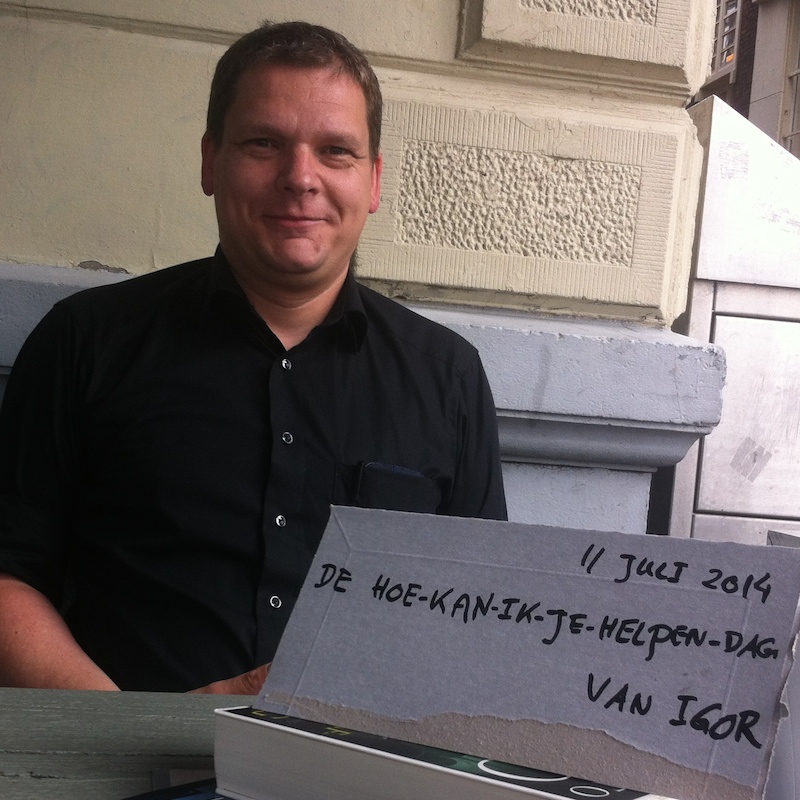 11 JULI 2014
DE HOE-KAN-IK-JE-HELPEN-DAG
VAN IGOR